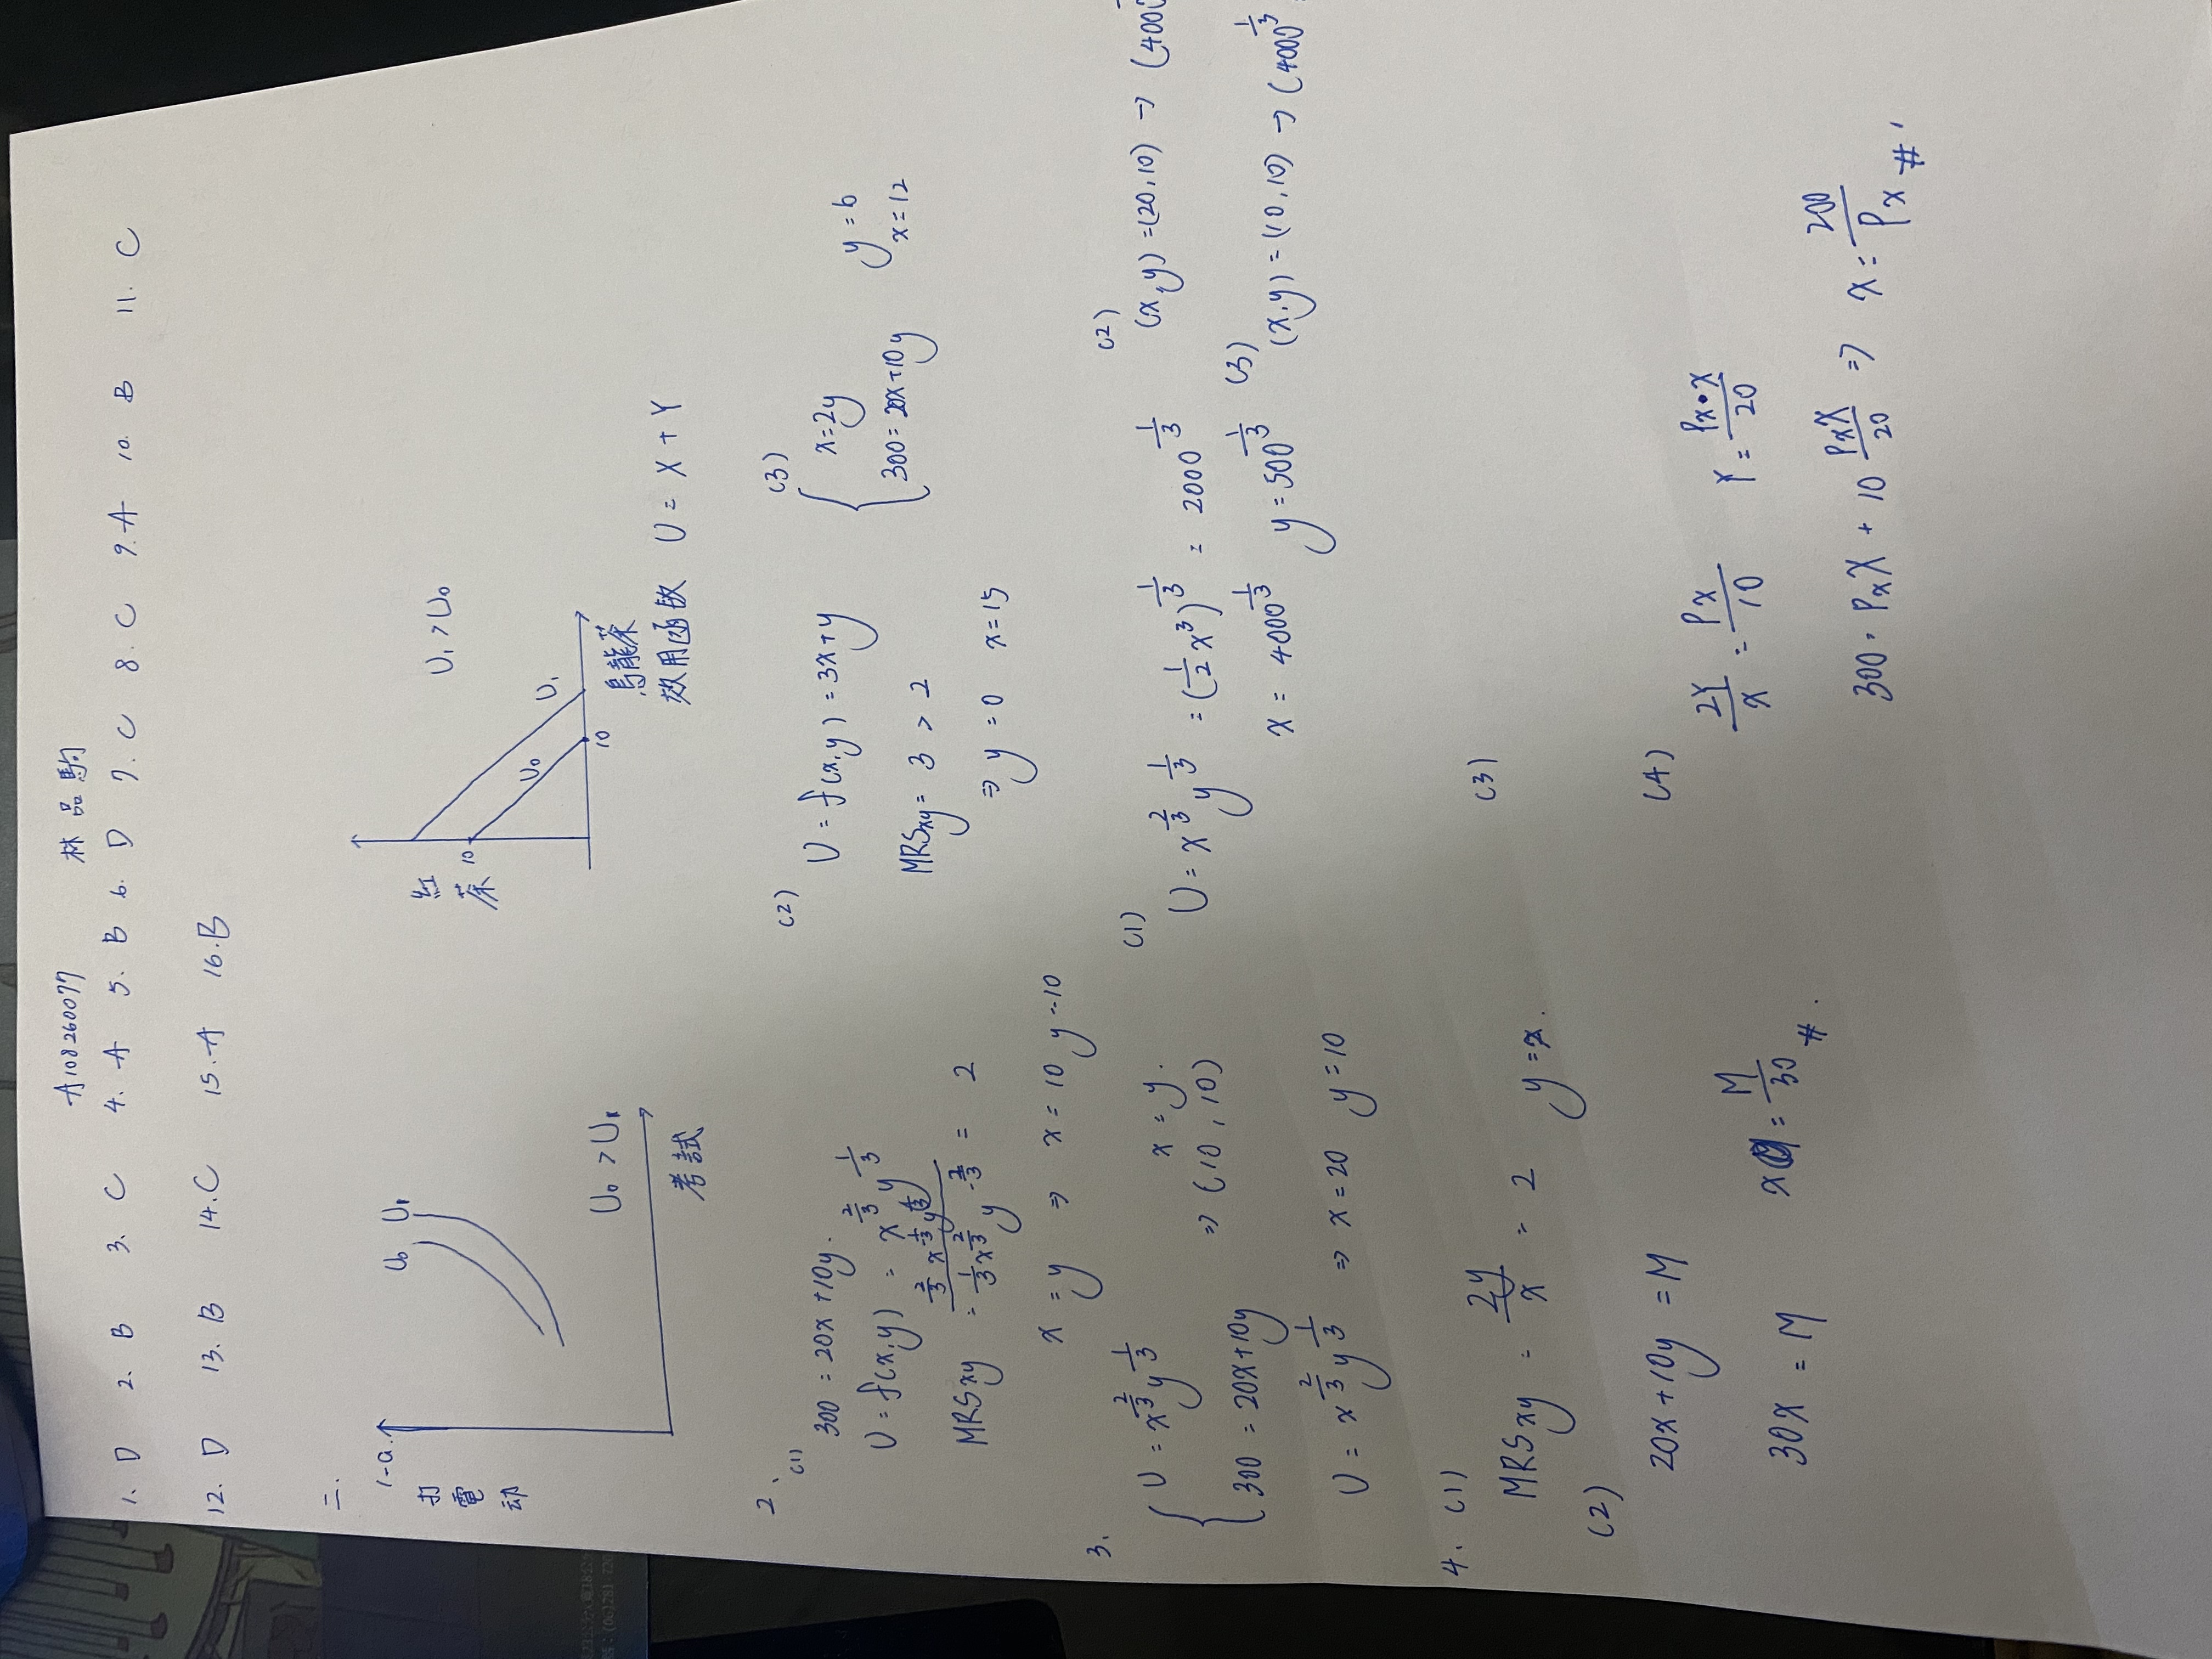 A108260077 林品駒
1. D 2. B 3. C 4. A 5. B 6. D 7. C 8. C 9. A 10. B 11. C
12. D 13. B 14. C 15. A 16. B
二.
1-a.
打電动
U₀ U₁
U₀ > U₁
考試
紅茶
10
U₀
U₁
10
U₁ > U₀
烏龍茶
效用函数 U = X + Y
2、
(1)
300 = 20x + 10y.
U = f(x,y) = x^(2/3) y^(1/3)
MRSxy = (2/3 x^(-1/3) y^(1/3)) / (1/3 x^(2/3) y^(-2/3)) = 2
x = y ⇒ x = 10 y = 10
(2)
U = f(x,y) = 3x + y
MRSxy = 3 > 2
⇒ y = 0 x = 15
(3)
x = 2y
300 = 20x + 10y
y = 6
x = 12
3.
U = x^(2/3) y^(1/3)
300 = 20x + 10y
x = y.
⇒ (10, 10)
U = x^(2/3) y^(1/3) ⇒ x = 20 y = 10
(1)
U = x^(2/3) y^(1/3) = (1/2 x³)^(1/3) = 2000^(1/3)
x = 4000^(1/3) y = 500^(1/3)
(2)
(x,y) = (20,10) → (400
(3)
(x,y) = (10,10) → (4000^(1/3)
4. (1)
MRSxy = 2y/x = 2 y = x.
(2)
20x + 10y = M
30x = M x = M/30 #.
(3)
(4)
2Y/x = Px/10 Y = Px•x/20
300 = PxX + 10 PxX/20 ⇒ x = 200/Px #